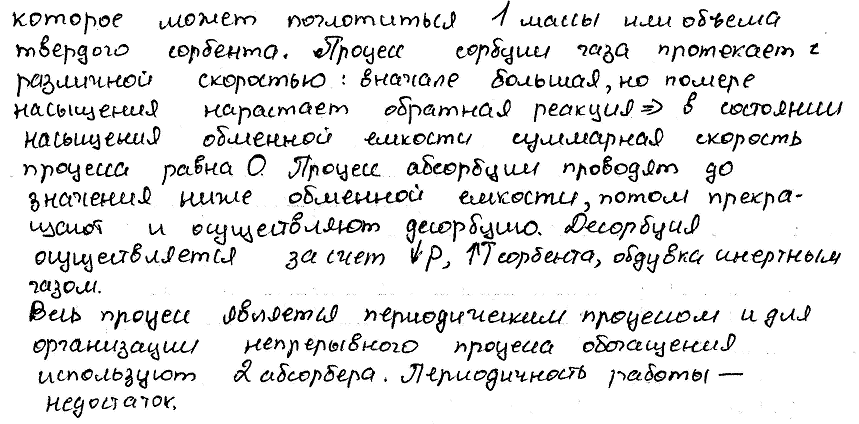 которое может поглотиться 1 массы или объема
твердого сорбента. Процесс сорбции газа протекает с
различной скоростью: вначале большая, но помере
насыщения нарастает обратная реакция ⇒ в состоянии
насыщения обменной емкости суммарная скорость
процесса равна 0. Процесс абсорбции проводят до
значения ниже обменной емкости, потом прекра-
щают и осуществляют десорбцию. Десорбция
осуществляется за счет ↓P, ↑T сорбента, обдувка инертным
газом.
Весь процесс является периодическим процессом и для
организации непрерывного процесса обогащения
используют 2 абсорбера. Периодичность работы —
недостаток.